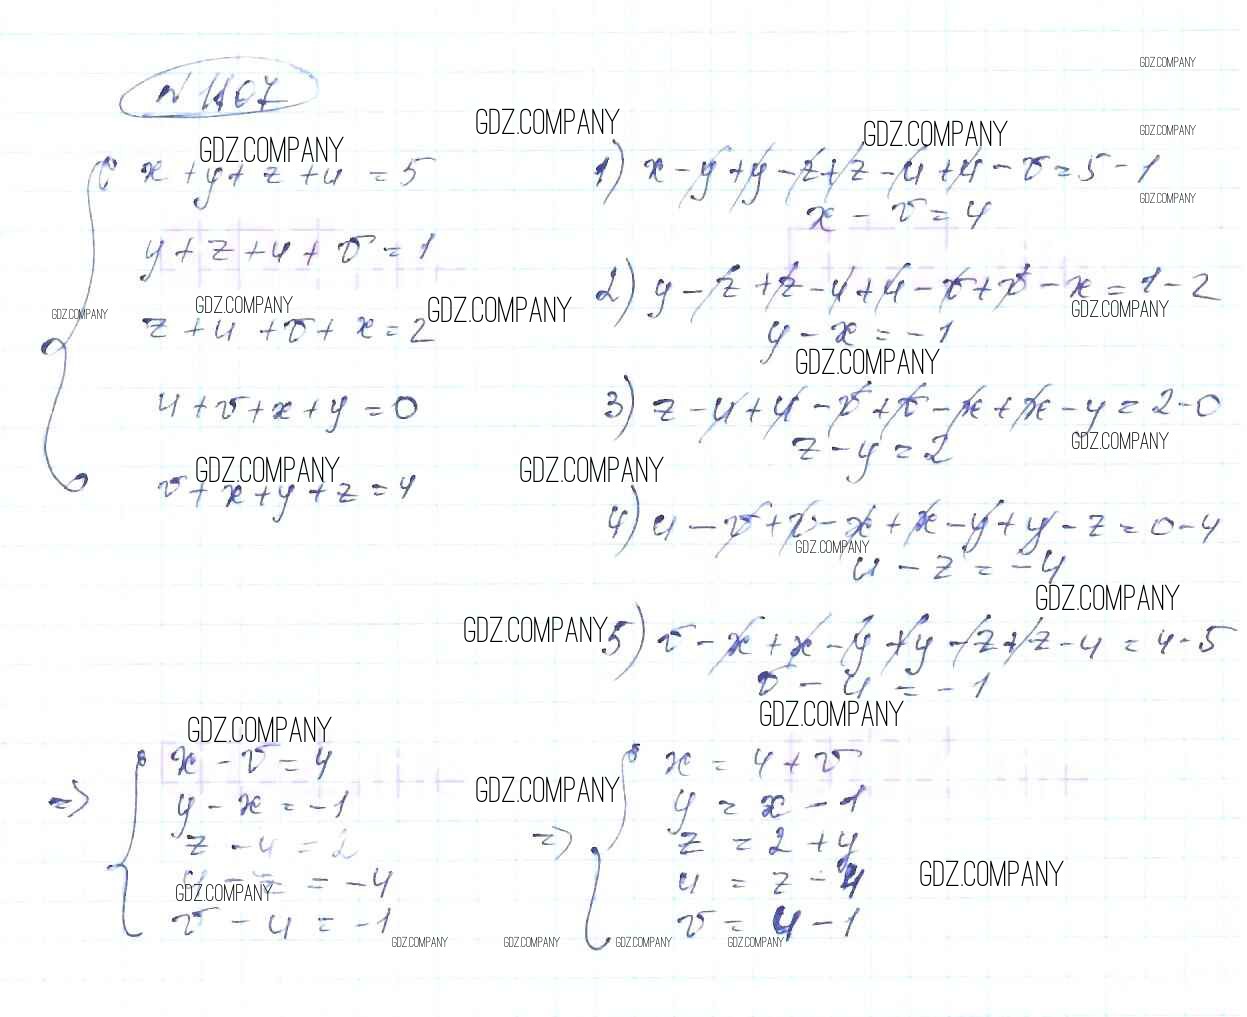 № 1107
GDZ.COMPANY
GDZ.COMPANY
GDZ.COMPANY
GDZ.COMPANY
GDZ.COMPANY
GDZ.COMPANY
x + y + z + u = 5
y + z + u + v = 1
GDZ.COMPANY
GDZ.COMPANY
GDZ.COMPANY
z + u + v + x = 2
u + v + x + y = 0
GDZ.COMPANY
v + x + y + z = 4
1) x - y + y - z + z - u + u - v = 5 - 1
x - v = 4
2) y - z + z - u + u - v + v - x = 1 - 2
GDZ.COMPANY
y - x = -1
GDZ.COMPANY
3) z - u + u - v + v - x + x - y = 2 - 0
z - y = 2
GDZ.COMPANY
GDZ.COMPANY
4) u - v + v - x + x - y + y - z = 0 - 4
GDZ.COMPANY
u - z = -4
GDZ.COMPANY
GDZ.COMPANY
5) v - x + x - y + y - z + z - u = 4 - 5
v - u = -1
GDZ.COMPANY
GDZ.COMPANY
=> x - v = 4
y - x = -1
z - y = 2
u - z = -4
GDZ.COMPANY
v - u = -1
GDZ.COMPANY
=> x = 4 + v
y = x - 1
z = 2 + y
u = z - 4
v = u - 1
GDZ.COMPANY
GDZ.COMPANY
GDZ.COMPANY
GDZ.COMPANY
GDZ.COMPANY